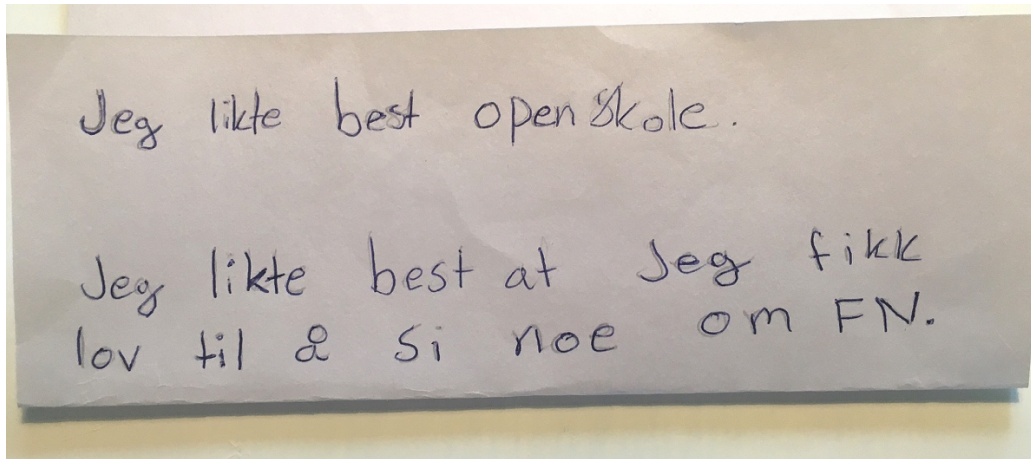 Jeg likte best open skole.
Jeg likte best at Jeg fikk
lov til å si noe om FN.